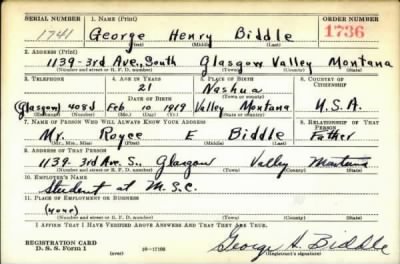 SERIAL NUMBER 1. NAME (Print) ORDER NUMBER
1741 George Henry Biddle 1736
(First) (Middle) (Last)
2. ADDRESS (Print)
1139-3rd Ave, South Glasgow Valley Montana
(Number and street or R. F. D. number) (Town) (County) (State)
3. TELEPHONE 4. AGE IN YEARS 5. PLACE OF BIRTH 6. COUNTRY OF CITIZENSHIP
21 Nashua
DATE OF BIRTH (Town or county)
(Glasgow) 408J Feb 10 1919 Valley Montana U.S.A.
(Exchange) (Number) (Mo.) (Day) (Yr.) (State or country)
7. NAME OF PERSON WHO WILL ALWAYS KNOW YOUR ADDRESS 8. RELATIONSHIP OF THAT PERSON
Mr. Royce E Biddle Father
(Mr., Mrs., Miss) (First) (Middle) (Last)
9. ADDRESS OF THAT PERSON
1139-3rd Ave S., Glasgow Valley Montana
(Number and street or R. F. D. number) (Town) (County) (State)
10. EMPLOYER'S NAME
Student at M.S.C.
11. PLACE OF EMPLOYMENT OR BUSINESS
(none)
(Number and street or R. F. D. number) (Town) (County) (State)
I AFFIRM THAT I HAVE VERIFIED ABOVE ANSWERS AND THAT THEY ARE TRUE.
REGISTRATION CARD George H. Biddle
D. S. S. Form 1 (over) (Registrant's signature)